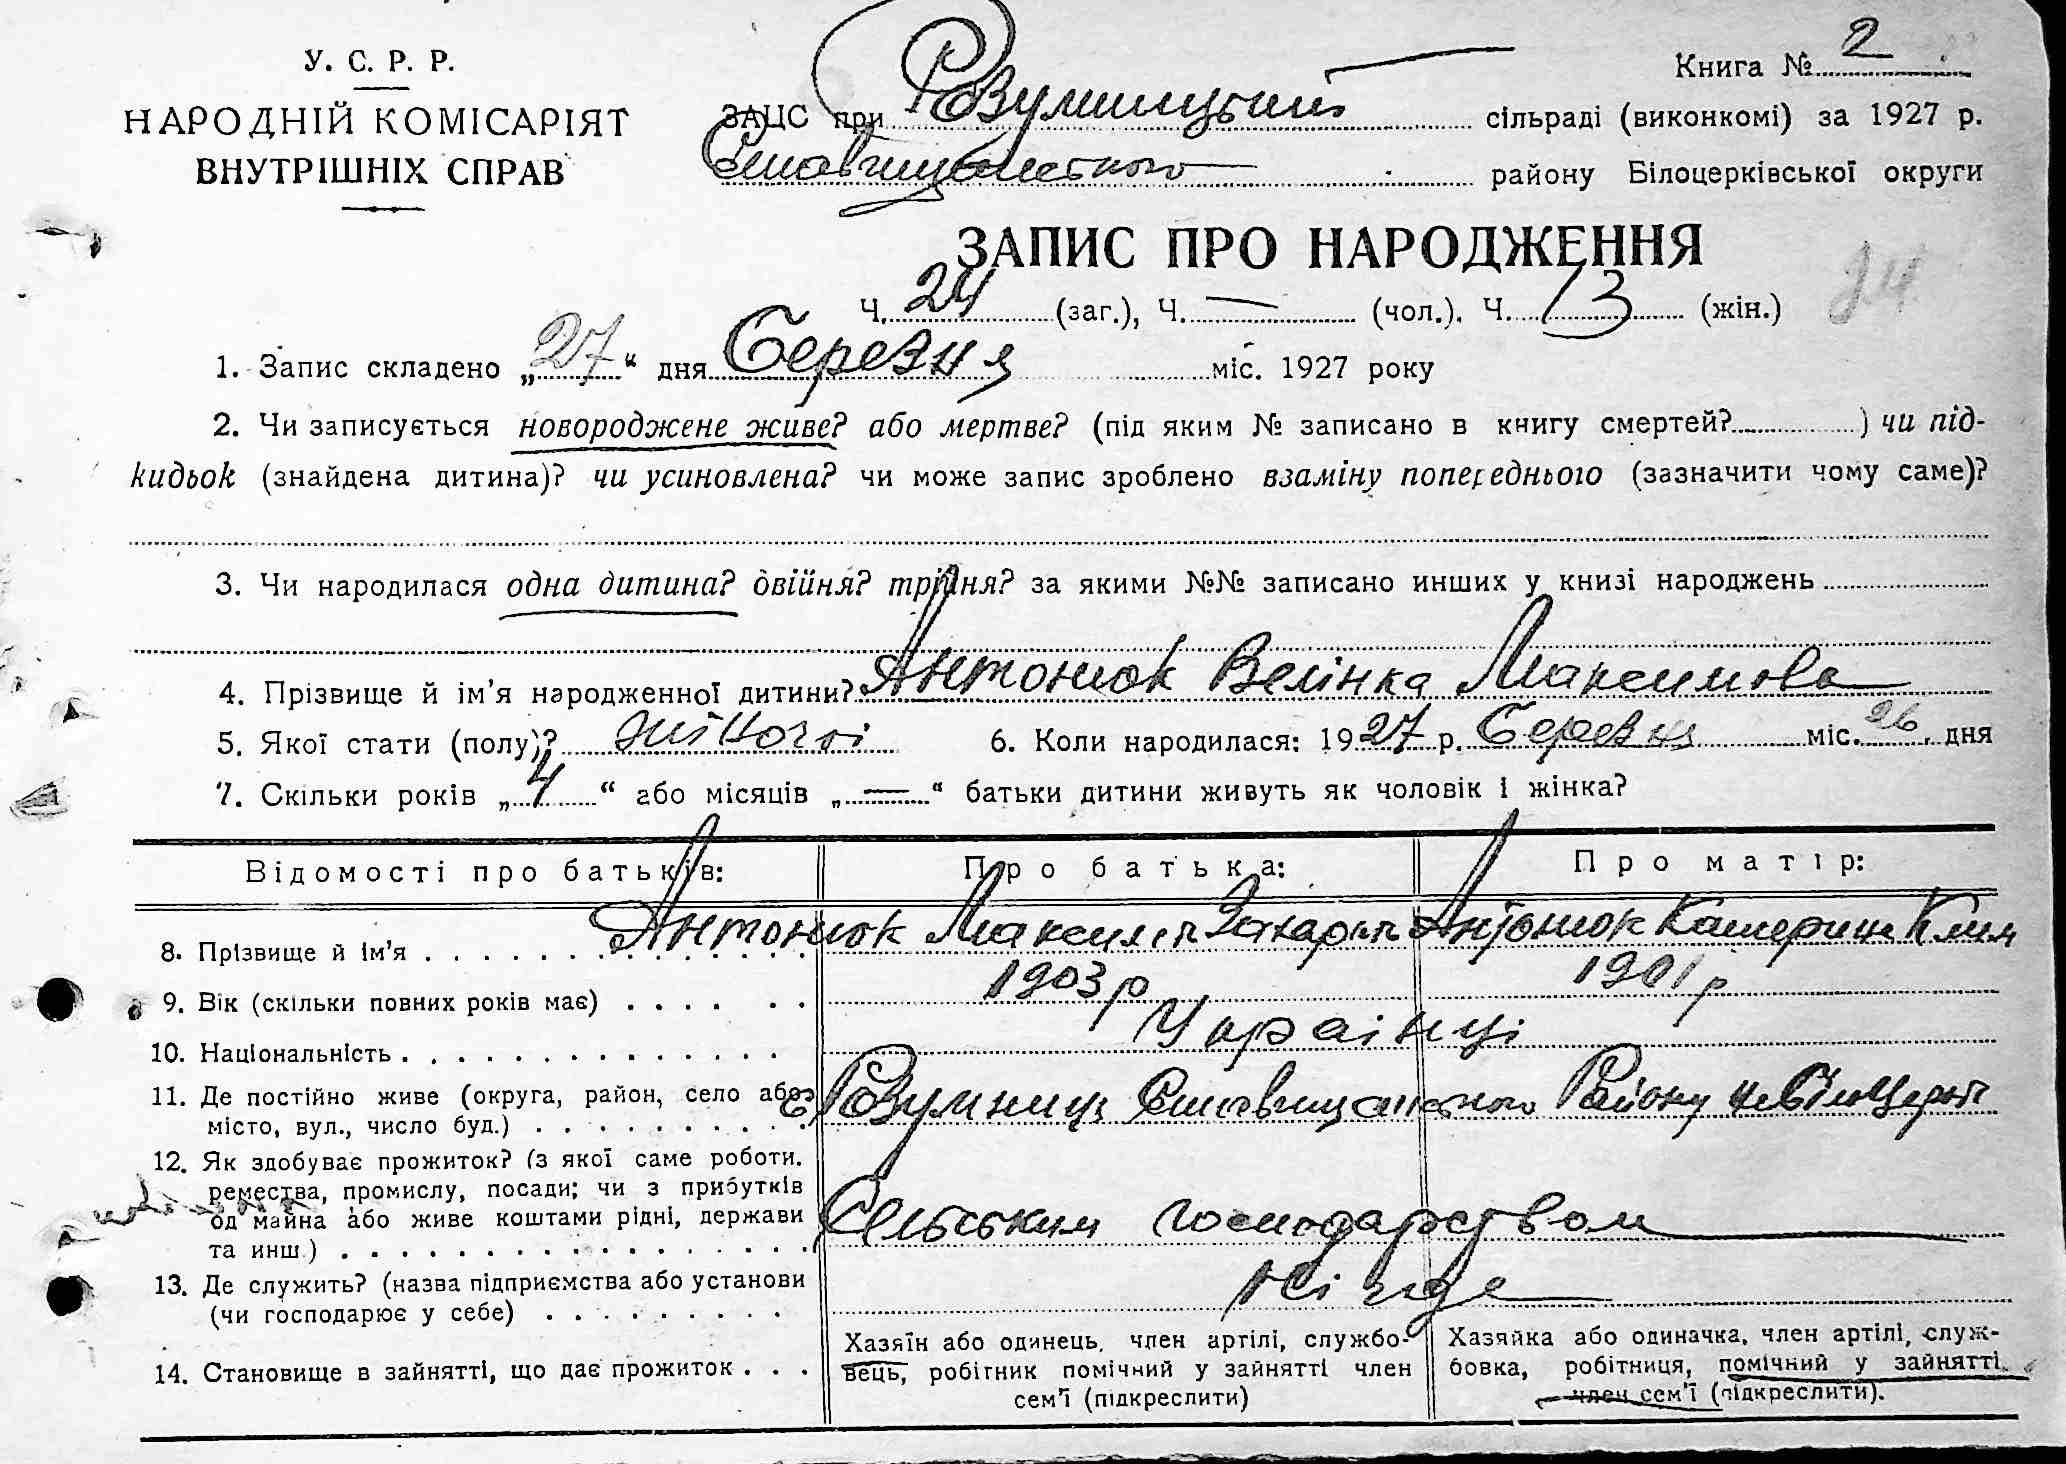 У. С. Р. Р.
НАРОДНІЙ КОМІСАРІЯТ
ВНУТРІШНІХ СПРАВ
Книга № 2
ЗАЦС при Розумницький сільраді (виконкомі) за 1927 р.
Ставищанського району Білоцерківської округи
ЗАПИС ПРО НАРОДЖЕННЯ
24
Ч. 24 (заг.), Ч. — (чол.). Ч. 13 (жін.)
1. Запис складено „27“ дня Березня міс. 1927 року
2. Чи записується новороджене живе? або мертве? (під яким № записано в книгу смертей? ) чи під-
кидьок (знайдена дитина)? чи усиновлена? чи може запис зроблено взаміну попереднього (зазначити чому саме)?
3. Чи народилася одна дитина? двійня? трійня? за якими №№ записано инших у книзі народжень
4. Прізвище й ім’я народженної дитини? Антонюк Велінка Максимова
5. Якої стати (полу)? жіночої 6. Коли народилася: 1927 р. Березня міс. 26 дня
7. Скільки років „4“ або місяців „—“ батьки дитини живуть як чоловік і жінка?
Відомості про батьків: Про батька: Про матір:
8. Прізвище й ім’я Антонюк Максим Захаров Антонюк Катерина Клим
9. Вік (скільки повних років має) 1903 р 1901 р
10. Національність Українці
11. Де постійно живе (округа, район, село або Розумниці Ставищанського Району
місто, вул., число буд.)
12. Як здобуває прожиток? (з якої саме роботи,
ремества, промислу, посади; чи з прибутків
од майна або живе коштами рідні, держави Сільським господарством
та инш.)
13. Де служить? (назва підприємства або установи Нігде
(чи господарює у себе)
Хазяїн або одинець, член артілі, службо- Хазяйка або одиначка, член артілі, служ-
14. Становище в зайнятті, що дає прожиток вець, робітник помічний у зайнятті член бовка, робітниця, помічний у зайнятті
сем’ї (підкреслити) член сем’ї (підкреслити).